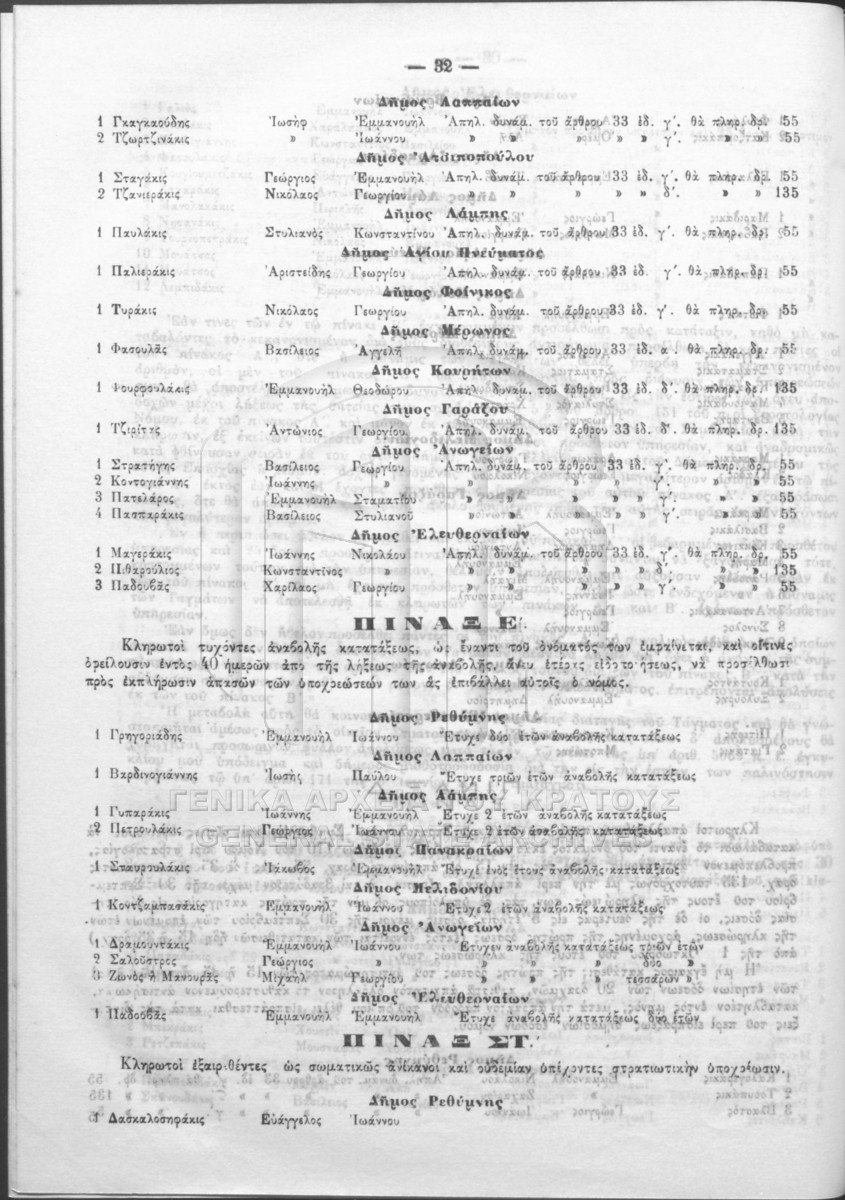 — 32 —
Δῆμος Λαππαίων
1 Γκαγκαούδης Ἰωσὴφ Ἐμμανουὴλ Ἀπηλ. δυνάμ. τοῦ ἄρθρου 33 ἐδ. γ΄. θὰ πληρ. δρ. 55
2 Τζωρτζινάκις » Ἰωάννου » » » » » γ΄. » » 55
Δῆμος Ἀτσιποπούλου
1 Σταγάκις Γεώργιος Ἐμμανουὴλ Ἀπηλ. δυνάμ. τοῦ ἄρθρου 33 ἐδ. γ΄. θὰ πληρ. δρ. 55
2 Τζανιεράκις Νικόλαος Γεωργίου » » » » » δ΄. » » 135
Δῆμος Λάμπης
1 Παυλάκις Στυλιανὸς Κωνσταντίνου Ἀπηλ. δυνάμ. τοῦ ἄρθρου 33 ἐδ. γ΄. θὰ πληρ. δρ. 55
Δῆμος Ἁγίου Πνεύματος
1 Παλιεράκις Ἀριστείδης Γεωργίου Ἀπηλ. δυνάμ. τοῦ ἄρθρου 33 ἐδ. γ΄. θὰ πληρ. δρ. 55
Δῆμος Φοίνικος
1 Τυράκις Νικόλαος Γεωργίου Ἀπηλ. δυνάμ. τοῦ ἄρθρου 33 ἐδ. γ΄. θὰ πληρ. δρ. 55
Δῆμος Μέρωνος
1 Φασουλᾶς Βασίλειος Ἀγγελῆ Ἀπηλ. δυνάμ. τοῦ ἄρθρου 33 ἐδ. α΄ θὰ πληρ. δρ. 55
Δῆμος Κουρήτων
1 Φουρφουλάκις Ἐμμανουὴλ Θεοδώρου Ἀπηλ. δυνάμ. τοῦ ἄρθρου 33 ἐδ. δ΄. θὰ πληρ. δρ. 135
Δῆμος Γαράζου
1 Τζιρίτης Ἀντώνιος Γεωργίου Ἀπηλ. δυνάμ. τοῦ ἄρθρου 33 ἐδ. δ΄. θὰ πληρ. δρ. 135
Δῆμος Ἀνωγείων
1 Στρατήγης Βασίλειος Γεωργίου Ἀπηλ. δυνάμ. τοῦ ἄρθρου 33 ἐδ. γ΄. θὰ πληρ. δρ. 55
2 Κοντογιάννης Ἰωάννης » » » » » γ΄. » » 55
3 Πατελάρος Ἐμμανουὴλ Σταματίου » » » » γ΄. » » 55
4 Πασπαράκις Βασίλειος Στυλιανοῦ » » » » γ΄. » » 55
Δῆμος Ἐλευθερναίων
1 Μαγεράκις Ἰωάννης Νικολάου Ἀπηλ. δυνάμ. τοῦ ἄρθρου 33 ἐδ. γ΄. θὰ πληρ. δρ. 55
2 Πιθαρούλιος Κωνσταντῖνος » » » » » δ΄. » » 135
3 Παδουβᾶς Χαρίλαος Γεωργίου » » » » γ΄. » » 55
ΠΙΝΑΞ Ε΄.
Κληρωτοὶ τυχόντες ἀναβολῆς κατατάξεως, ὡς ἔναντι τοῦ ὀνόματός των ἐμφαίνεται, καὶ οἵτινες
ὀφείλουσιν ἐντὸς 40 ἡμερῶν ἀπὸ τῆς λήξεως τῆς ἀναβολῆς, ἄνευ ἑτέρας εἰδοποιήσεως, νὰ προσέλθωσι
πρὸς ἐκπλήρωσιν ἁπασῶν τῶν ὑποχρεώσεών των ἃς ἐπιβάλλει αὐτοῖς ὁ νόμος.
Δῆμος Ρεθύμνης
1 Γρηγοριάδης Ἐμμανουὴλ Ἰωάννου Ἔτυχε δύο ἐτῶν ἀναβολῆς κατατάξεως
Δῆμος Λαππαίων
1 Βαρδινογιάννης Ἰωσὴφ Παύλου Ἔτυχε τριῶν ἐτῶν ἀναβολῆς κατατάξεως
ΓΕΝΙΚΑ ΑΡΧΕΙΑ ΤΟΥ ΚΡΑΤΟΥΣ
Δῆμος Λάμπης
1 Γυπαράκις Ἰωάννης Ἐμμανουὴλ Ἔτυχε 2 ἐτῶν ἀναβολῆς κατατάξεως
2 Πετρουλάκις Γεώργιος Ἰωάννου Ἔτυχε 2 ἐτῶν ἀναβολῆς κατατάξεως
GENERAL STATE ARCHIVES
Δῆμος Πανακραίων
1 Σταυρουλάκις Ἰάκωβος Ἐμμανουὴλ Ἔτυχε ἑνὸς ἔτους ἀναβολῆς κατατάξεως
Δῆμος Μελιδονίου
1 Κοντζαμπασάκις Ἐμμανουὴλ Ἰωάννου Ἔτυχε 2 ἐτῶν ἀναβολῆς κατατάξεως
Δῆμος Ἀνωγείων
1 Δραμουντάκις Ἐμμανουὴλ Ἰωάννου Ἔτυχεν ἀναβολῆς κατατάξεως τριῶν ἐτῶν
2 Σαλούστρος Γεώργιος » » » » δύο »
3 Ζωνὸς ἢ Μανουρᾶς Μιχαὴλ Γεωργίου » » » τεσσάρων »
Δῆμος Ἐλευθερναίων
1 Παδουβᾶς Ἐμμανουὴλ Ἐμμανουὴλ Ἔτυχε ἀναβολῆς κατατάξεως δύο ἐτῶν
ΠΙΝΑΞ ΣΤ΄.
Κληρωτοὶ ἐξαιρεθέντες ὡς σωματικῶς ἀνίκανοι καὶ οὐδεμίαν ὑπέχοντες στρατιωτικὴν ὑποχρέωσιν.
Δῆμος Ρεθύμνης
1 Δασκαλοσηφάκις Εὐάγγελος Ἰωάννου